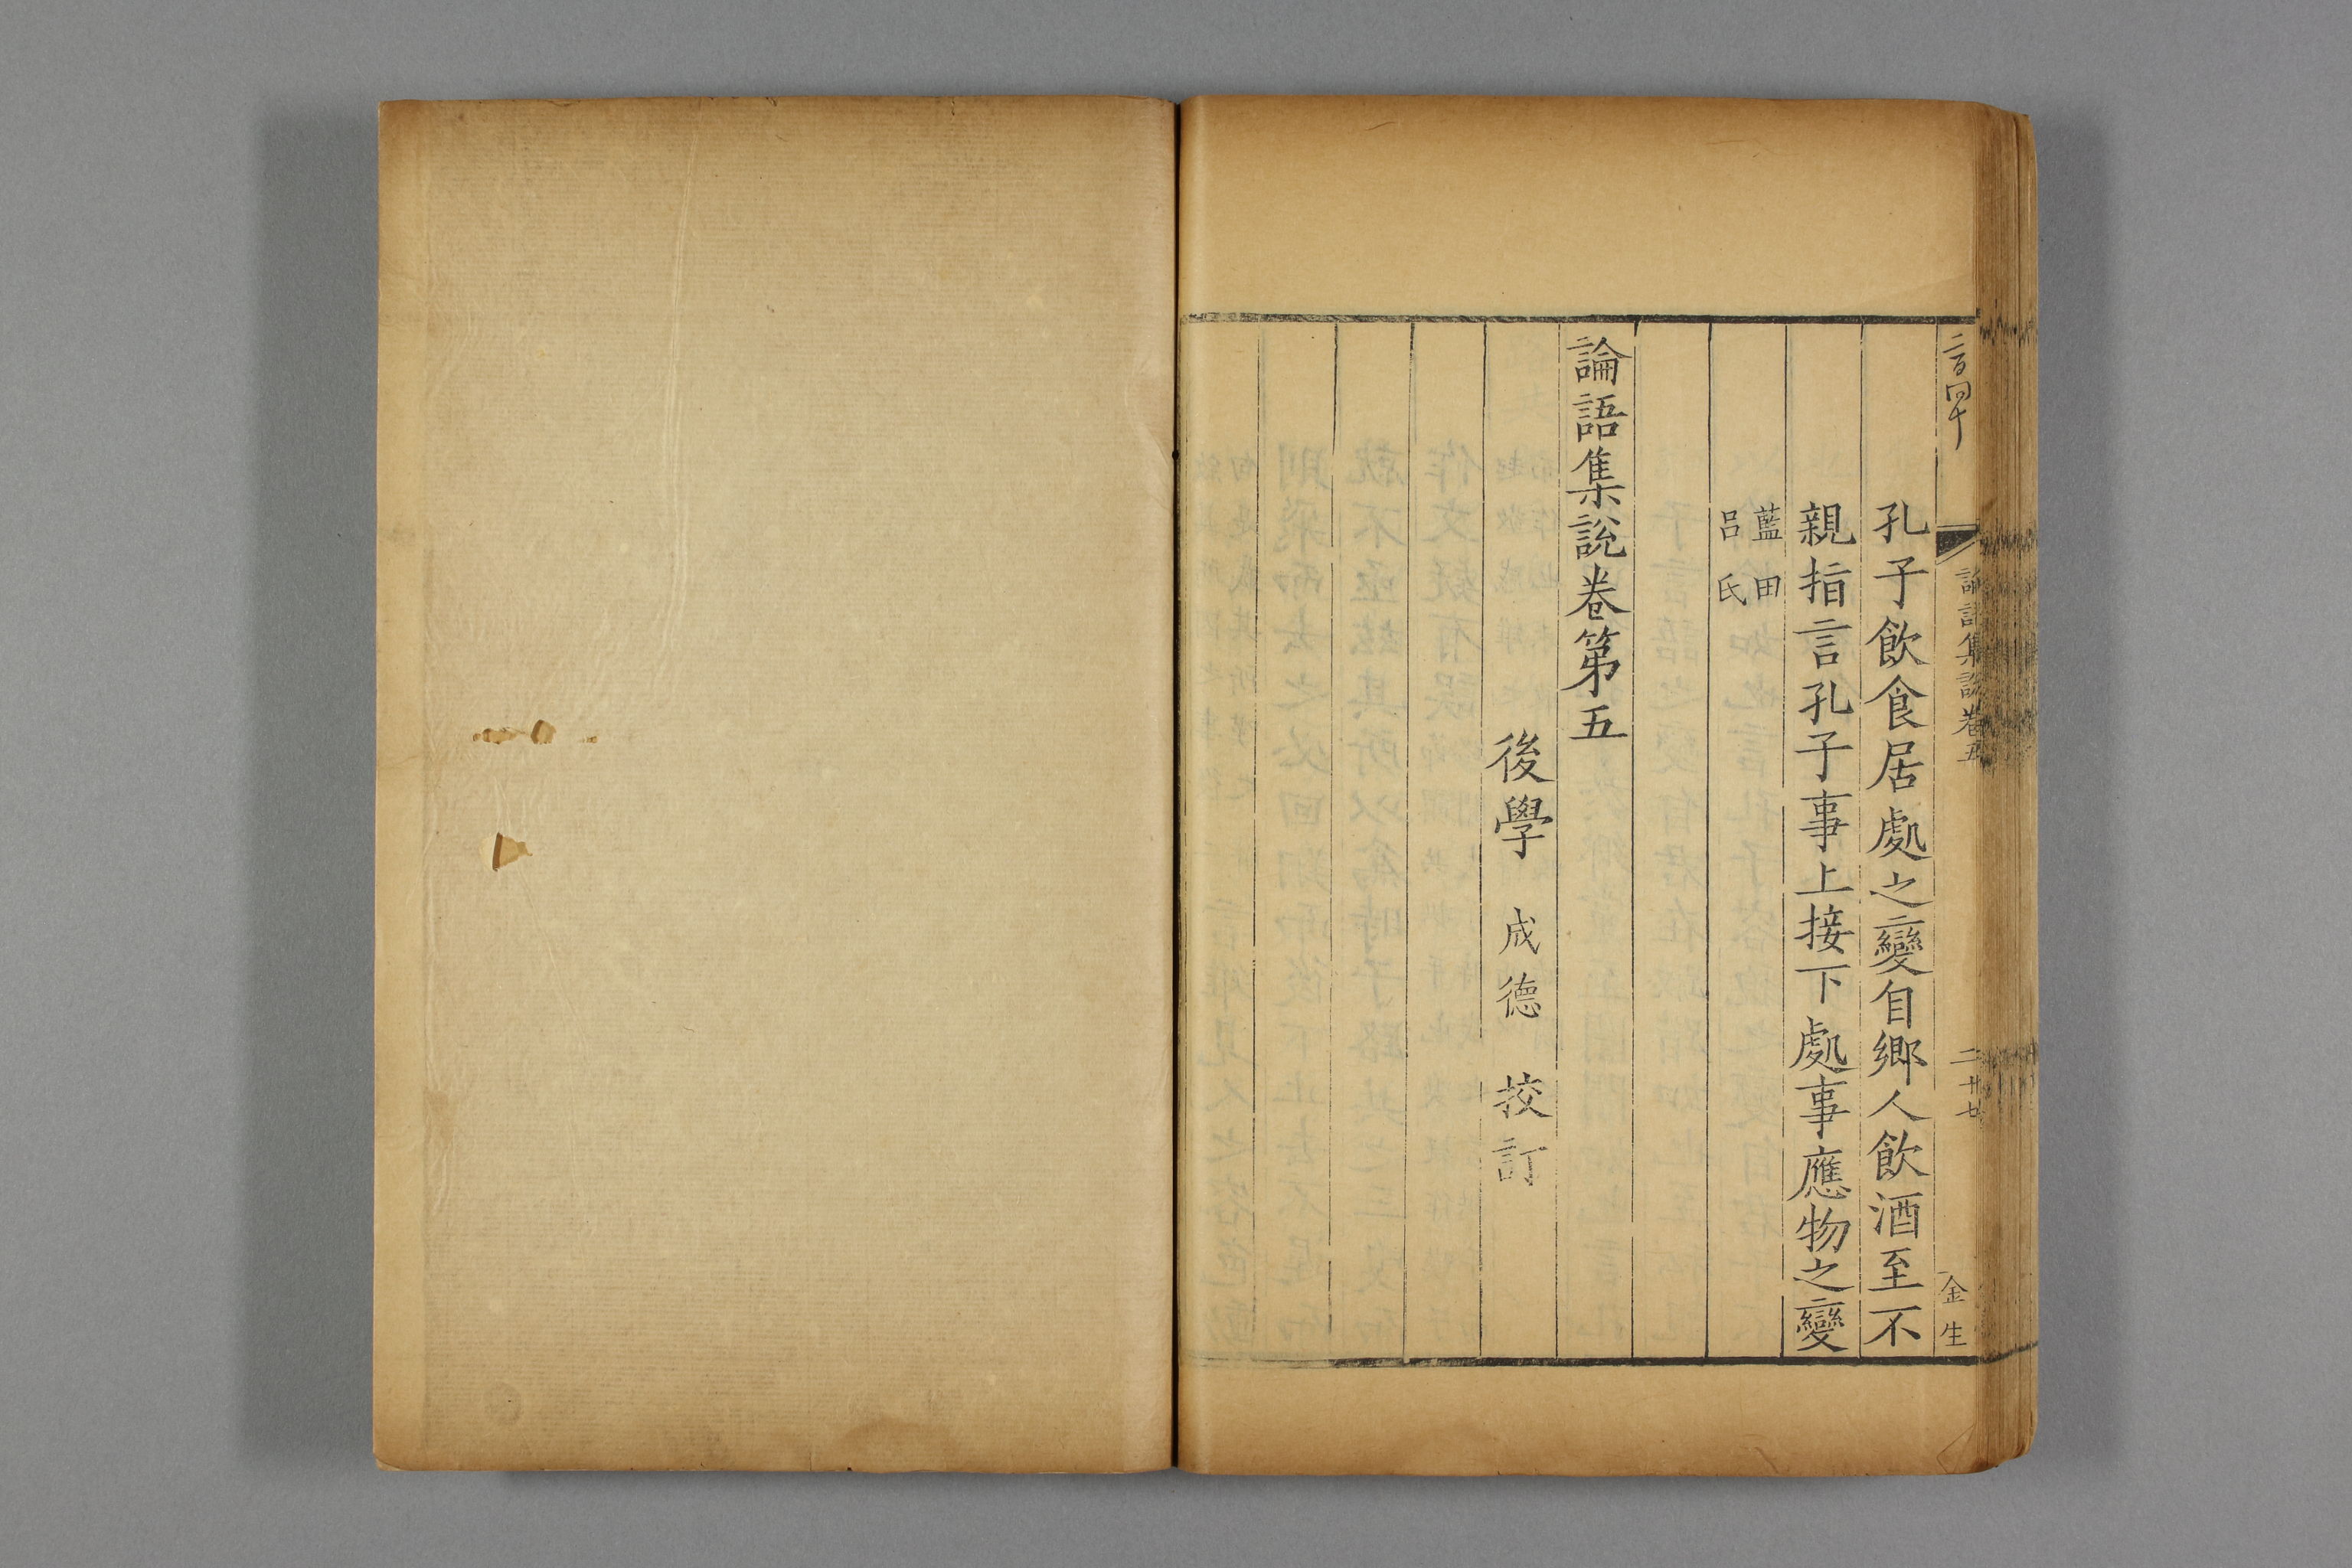 二百四十
論語集說卷五
二 廿七
金生
孔子飲食居處之變自鄉人飲酒至不
親指言孔子事上接下處事應物之變
藍田
呂氏
論語集說卷第五
後學 成德 校訂